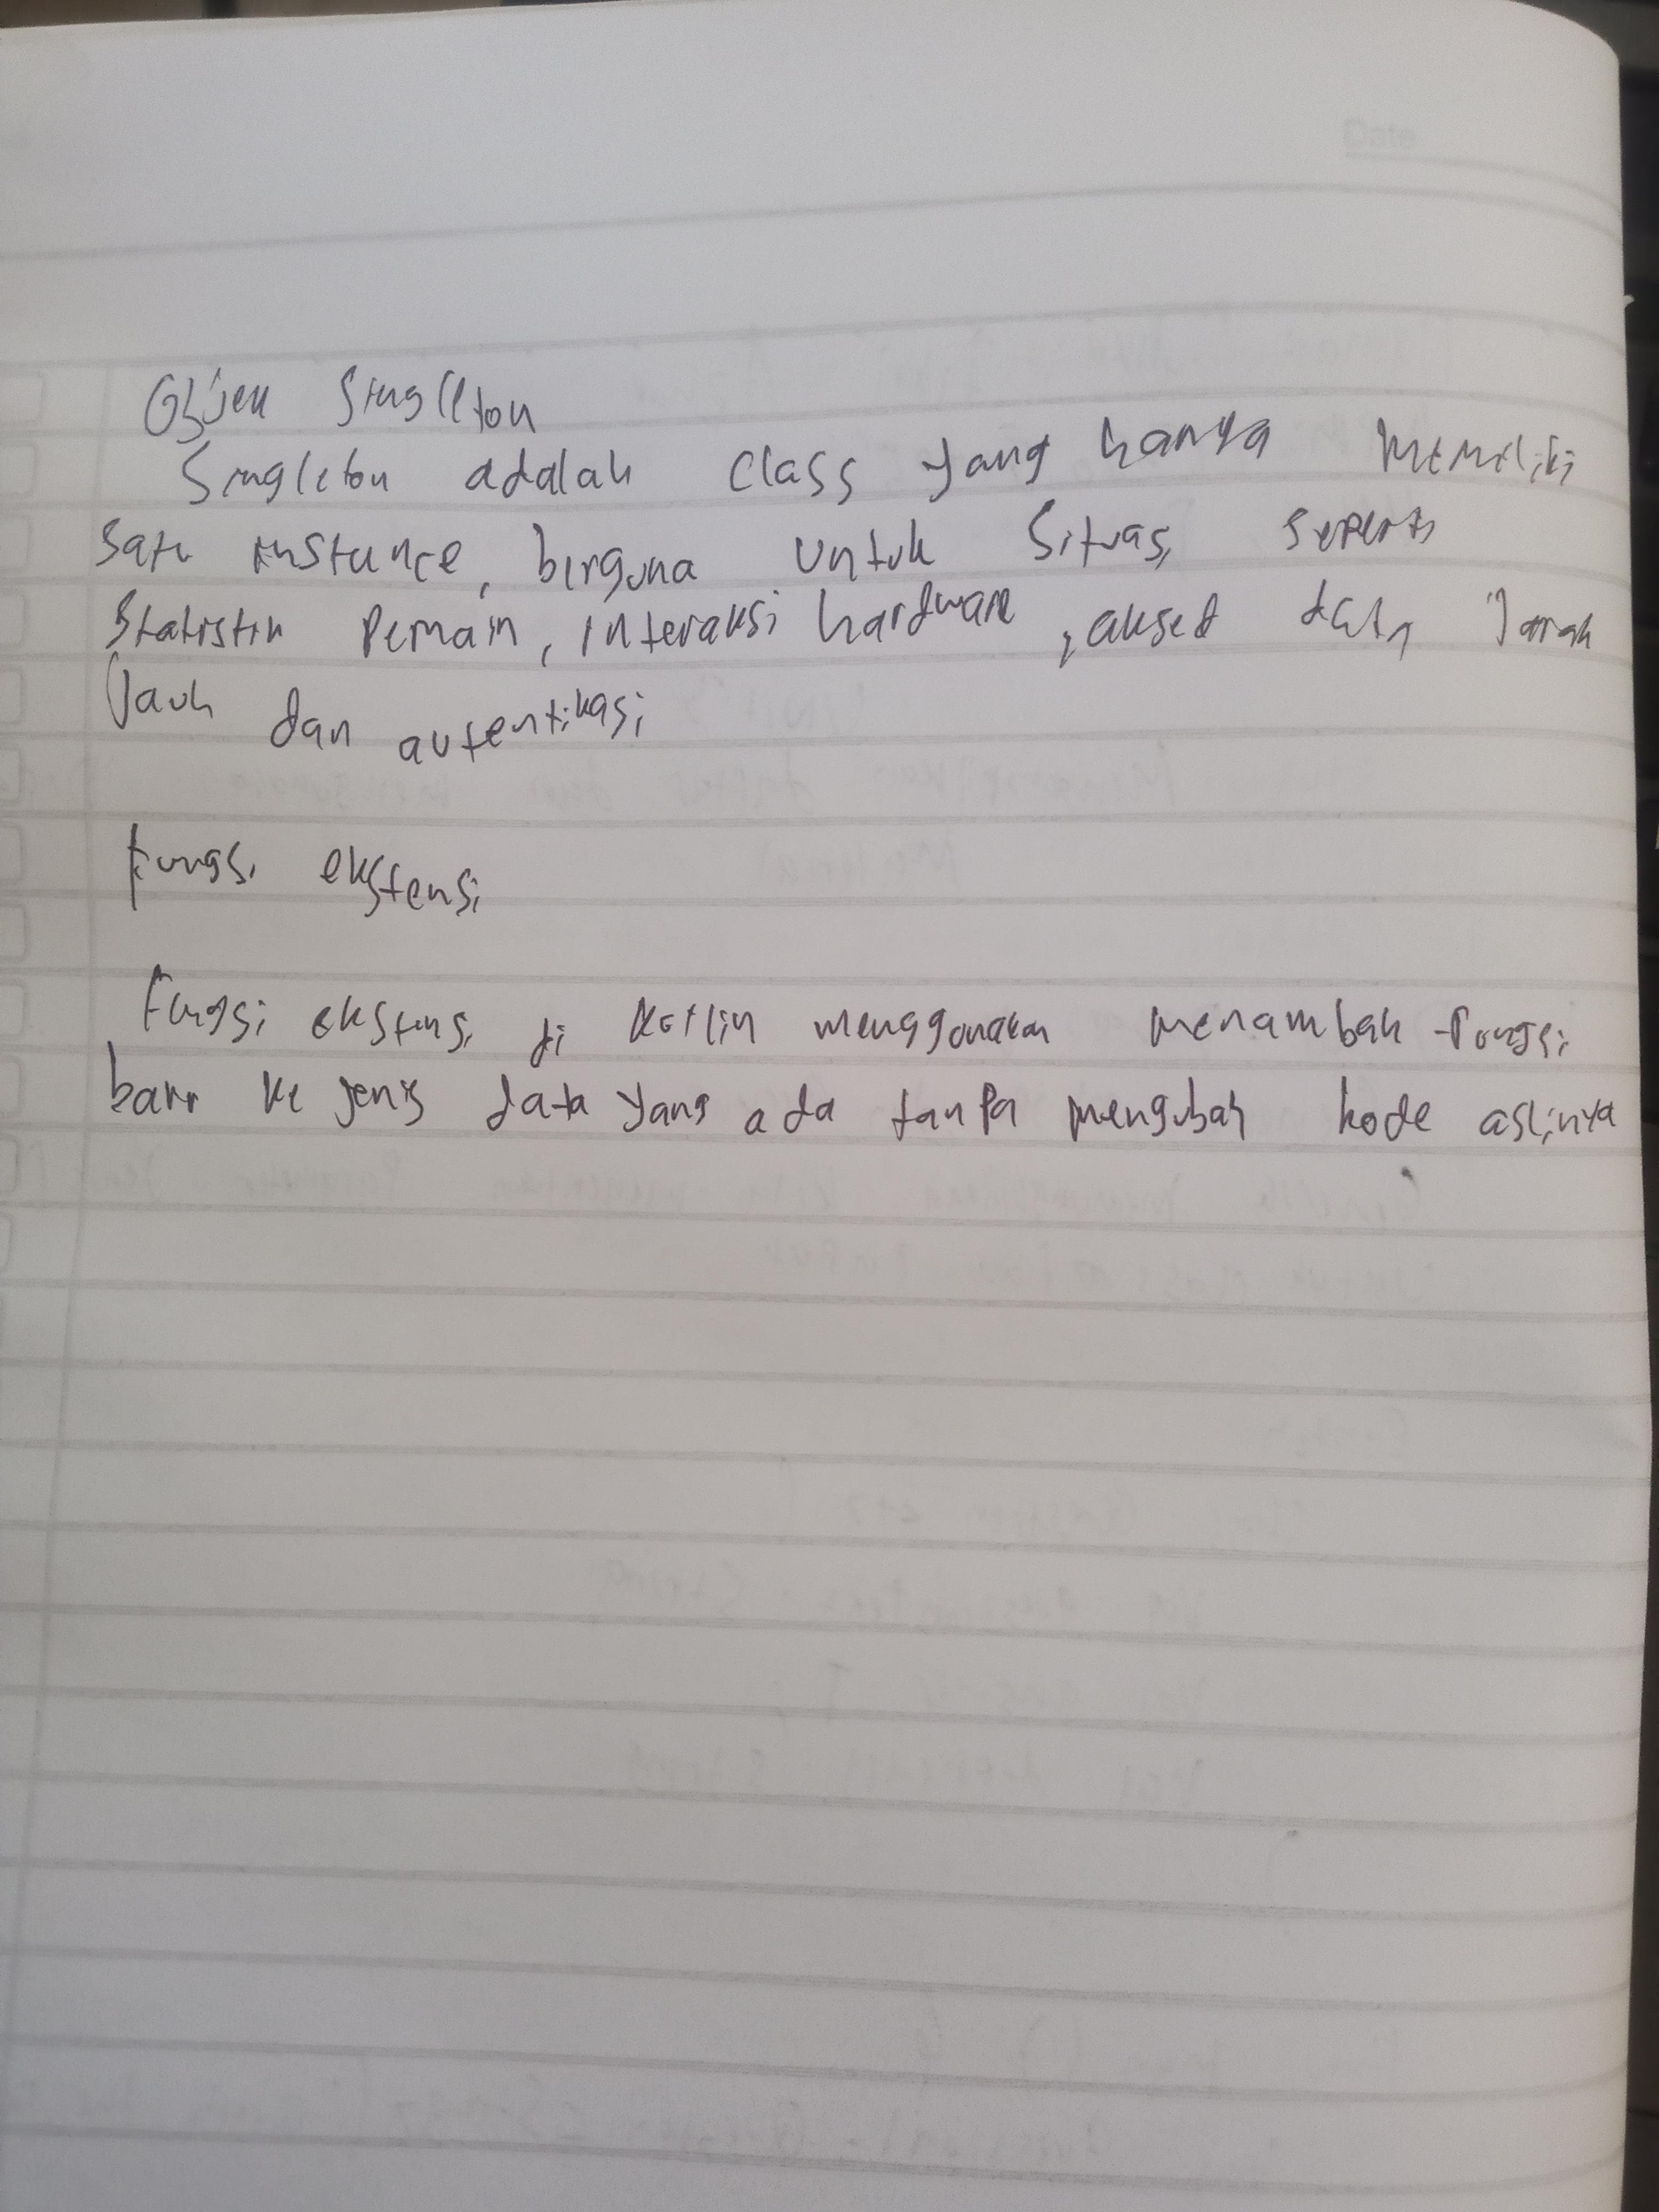 Date
Objek Singleton
Singleton adalah class yang hanya memiliki
satu instance, berguna untuk situasi seperti
Statistik Pemain, interaksi hardware, akses data Jarak
Jauh dan autentikasi
Fungsi ekstensi
Fungsi ekstensi di kotlin menggunakan menambah fungsi
baru ke jenis data yang ada tanpa mengubah kode aslinya